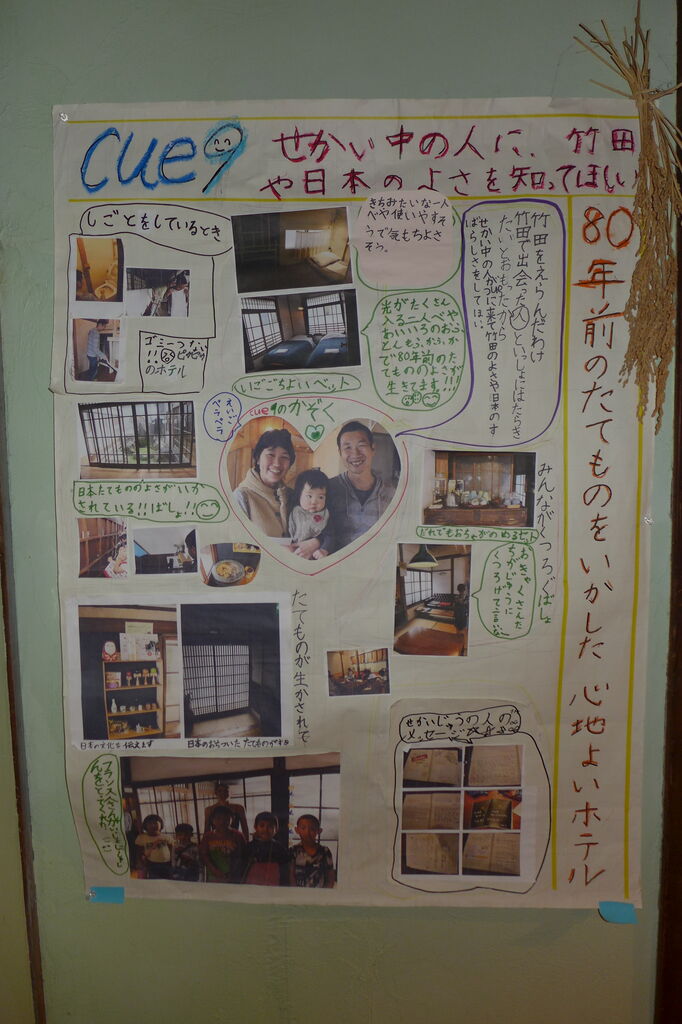 cue9
せかい中の人に、竹田
や日本のよさを知ってほしい
80年前のたてものをいかした 心地よいホテル
しごとをしているとき
ゴミ一つない
!! ピカピカ
のホテル
きちみたいな一人
べや使いやすそ
うで気もちよさ
そう。
光がたくさん
入る二人べや
で80年前のた
てもののよさが
生きてます!!!
いごごちよいベット
竹田をえらんだわけ
竹田で出会った人といっしょにはたらき
たいとおもったから
せかい中の人がcueに来て竹田のよさや日本のす
ばらしさをしてほしい。
えいご
ペラペラ
cue9のかぞく
日本たてもののよさがいか
されている!!ばしょ!!
みんながくつろぐばしょ
だれでもおちゃがのめるセット
おきゃくさんた
ちがじゆうに
くつろげて言いな
たてものが生かされて
日本の文化を伝えます
日本のおちついたたてものがすき
せかいじゅうの人の
メッセージ